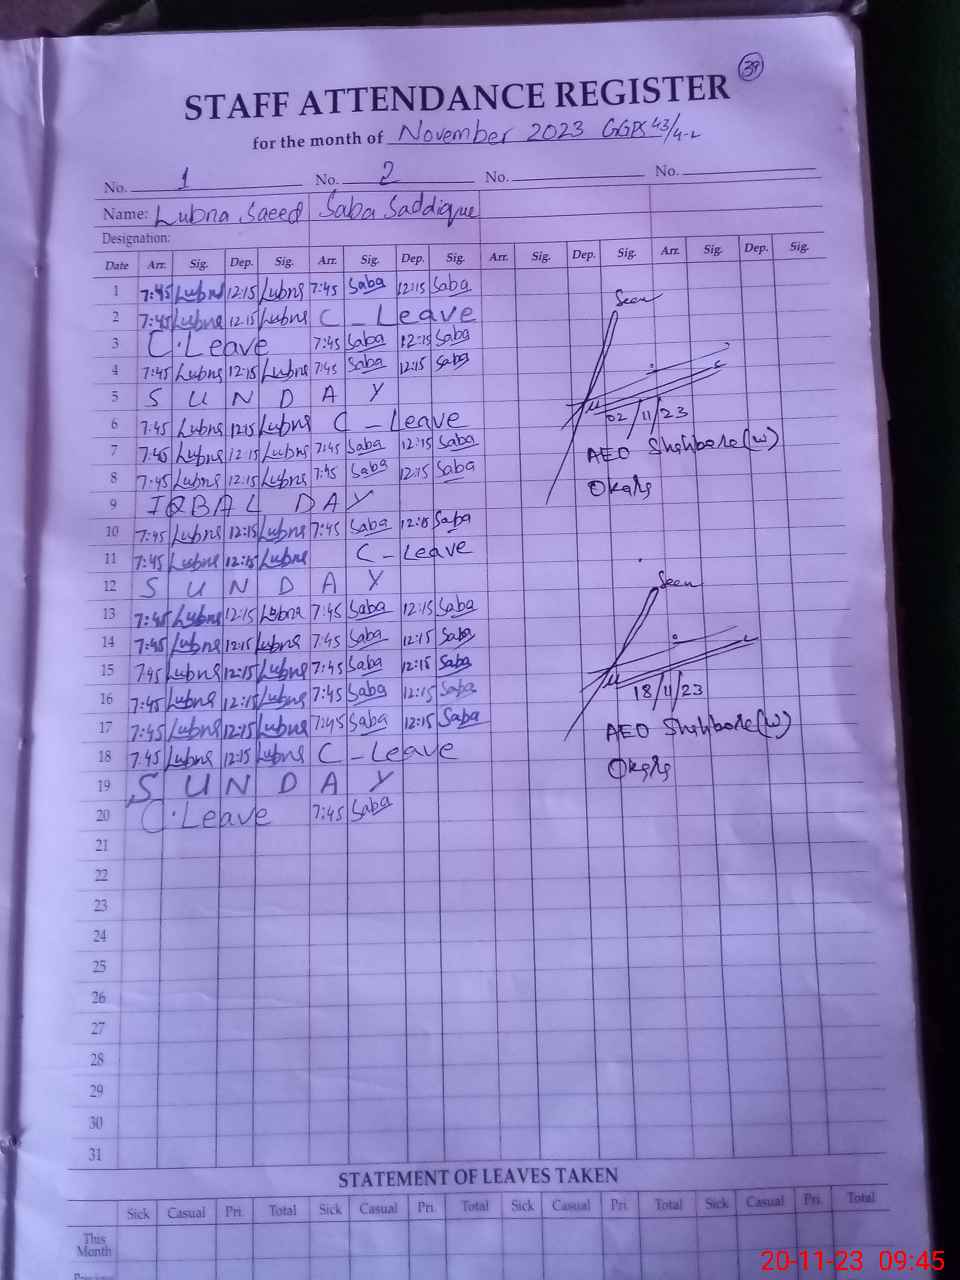 39
STAFF ATTENDANCE REGISTER
for the month of November 2023 GGPS 43/4-L
No. 1 No. 2 No. No.
Name: Lubna Saeed Saba Saddique
Designation:
Date Arr. Sig. Dep. Sig. Arr. Sig. Dep. Sig. Arr. Sig. Dep. Sig. Arr. Sig. Dep. Sig.
1 7:45 Lubna 12:15 Lubna 7:45 Saba 12:15 Saba
Seen
2 7:45 Lubna 12:15 Lubna C - Leave
3 C. Leave 7:45 Saba 12:15 Saba
4 7:45 Lubna 12:15 Lubna 7:45 Saba 12:15 Saba
5 S U N D A Y
02/11/23
6 7:45 Lubna 12:15 Lubna C - Leave
7 7:45 Lubna 12:15 Lubna 7:45 Saba 12:15 Saba
AEO Shahbore (W)
8 7:45 Lubna 12:15 Lubna 7:45 Saba 12:15 Saba
Okara
9 IQBAL DAY
10 7:45 Lubna 12:15 Lubna 7:45 Saba 12:15 Saba
11 7:45 Lubna 12:15 Lubna C - Leave
12 S U N D A Y
Seen
13 7:45 Lubna 12:15 Lubna 7:45 Saba 12:15 Saba
14 7:45 Lubna 12:15 Lubna 7:45 Saba 12:15 Saba
15 7:45 Lubna 12:15 Lubna 7:45 Saba 12:15 Saba
16 7:45 Lubna 12:15 Lubna 7:45 Saba 12:15 Saba
18/11/23
17 7:45 Lubna 12:15 Lubna 7:45 Saba 12:15 Saba
AEO Shahbore (W)
18 7:45 Lubna 12:15 Lubna C - Leave
Okara
19 S U N D A Y
20 C. Leave 7:45 Saba
21
22
23
24
25
26
27
28
29
30
31
STATEMENT OF LEAVES TAKEN
Sick Casual Pri. Total Sick Casual Pri. Total Sick Casual Pri. Total Sick Casual Pri. Total
This
Month
20-11-23 09:45